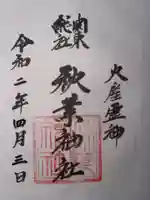 火産霊神
関東総社
秋葉神社
令和二年四月三日